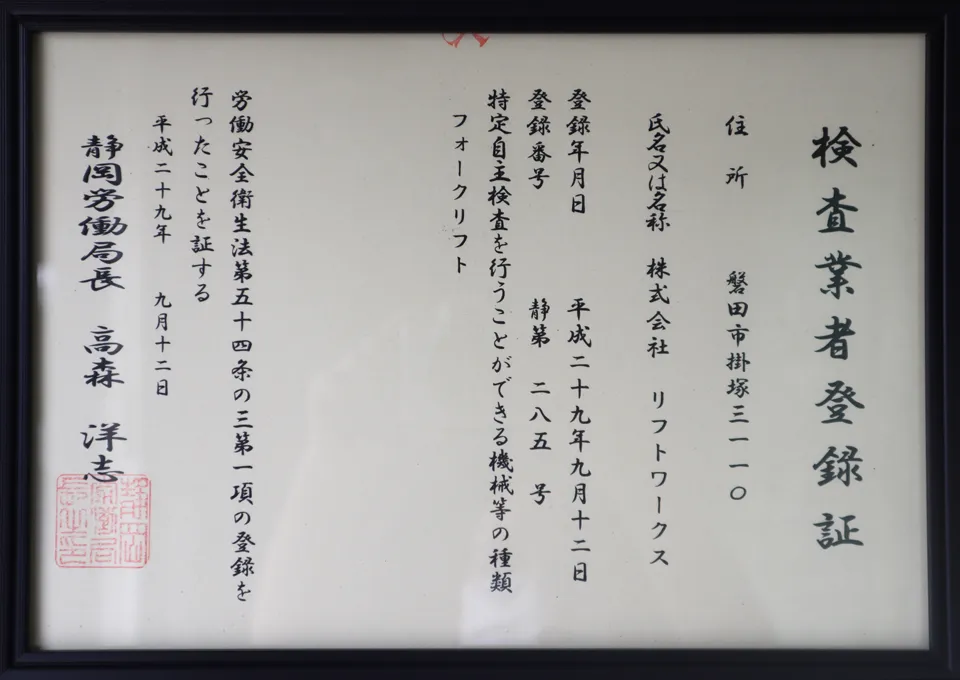 検査業者登録証
住所 磐田市掛塚三一一〇
氏名又は名称 株式会社 リフトワークス
登録年月日 平成二十九年九月十二日
登録番号 静第 二八五 号
特定自主検査を行うことができる機械等の種類
フォークリフト
労働安全衛生法第五十四条の三第一項の登録を
行ったことを証する
平成二十九年 九月十二日
静岡労働局長 高森 洋志